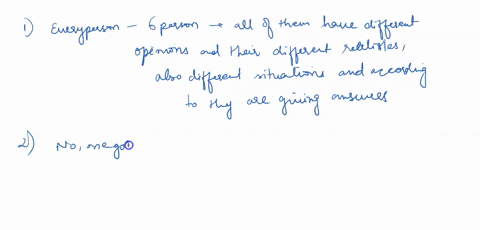 1) Everyperson - 6 person → all of them have different
openions and their different relatives,
also different situations and according
to they are giving answers
2) No, one go